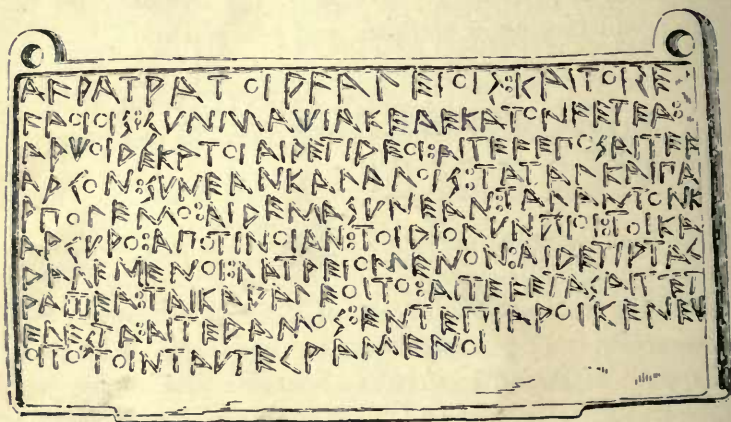 ΑϜΡΑΤΡΑΤΟΙΡϜΑΛΕΙΟΙΣ:ΚΑΙΤΟΙΣΕ
ϜΑΟΙΟΙΣ:ΣΥΝΜΑΧΙΑΚΕΑΕΚΑΤΟΝϜΕΤΕΑ:
ΑΡΧΟΙΔΕΚΑΤΟΙΑΙΔΕΤΙΔΕΟΙ:ΑΙΤΕϜΕΠΟΣΑΙΤΕϜ
ΑΡΓΟΝ:ΣΥΝΕΑΝΚΑΛΑΛΟΙΣ:ΤΑΤΑΛΚΑΙΠΑ
ΡΠΟΛΕΜΟ:ΑΙΔΕΜΑΣΥΝΕΑΝ:ΤΑΛΑΝΤΟΝΚ
ΑΡΓΥΡΟ:ΑΠΟΤΙΝΟΙΑΝ:ΤΟΙΔΙΟΛΥΝΠΙΟΙ:ΤΟΙΚΑ
ΔΑΛΕΜΕΝΟΙ:ΛΑΤΡΕΙΟΜΕΝΟΝ:ΑΙΔΕΤΙΡΤΑΓ
ΡΑΦΕΑ:ΤΑΙΚΑΔΑΛΕΟΙΤΟ:ΑΙΤΕϜΕΤΑΣΑΙΤΕΤ
ΕΛΕΣΤΑ:ΑΙΤΕΔΑΜΟΣ:ΕΝΤΕΠΙΑΡΟΙΚΕΝΕΧ
ΟΙΤΟΤΟΙΝΤΑΥΤΕΓΡΑΜΕΝΟΙ